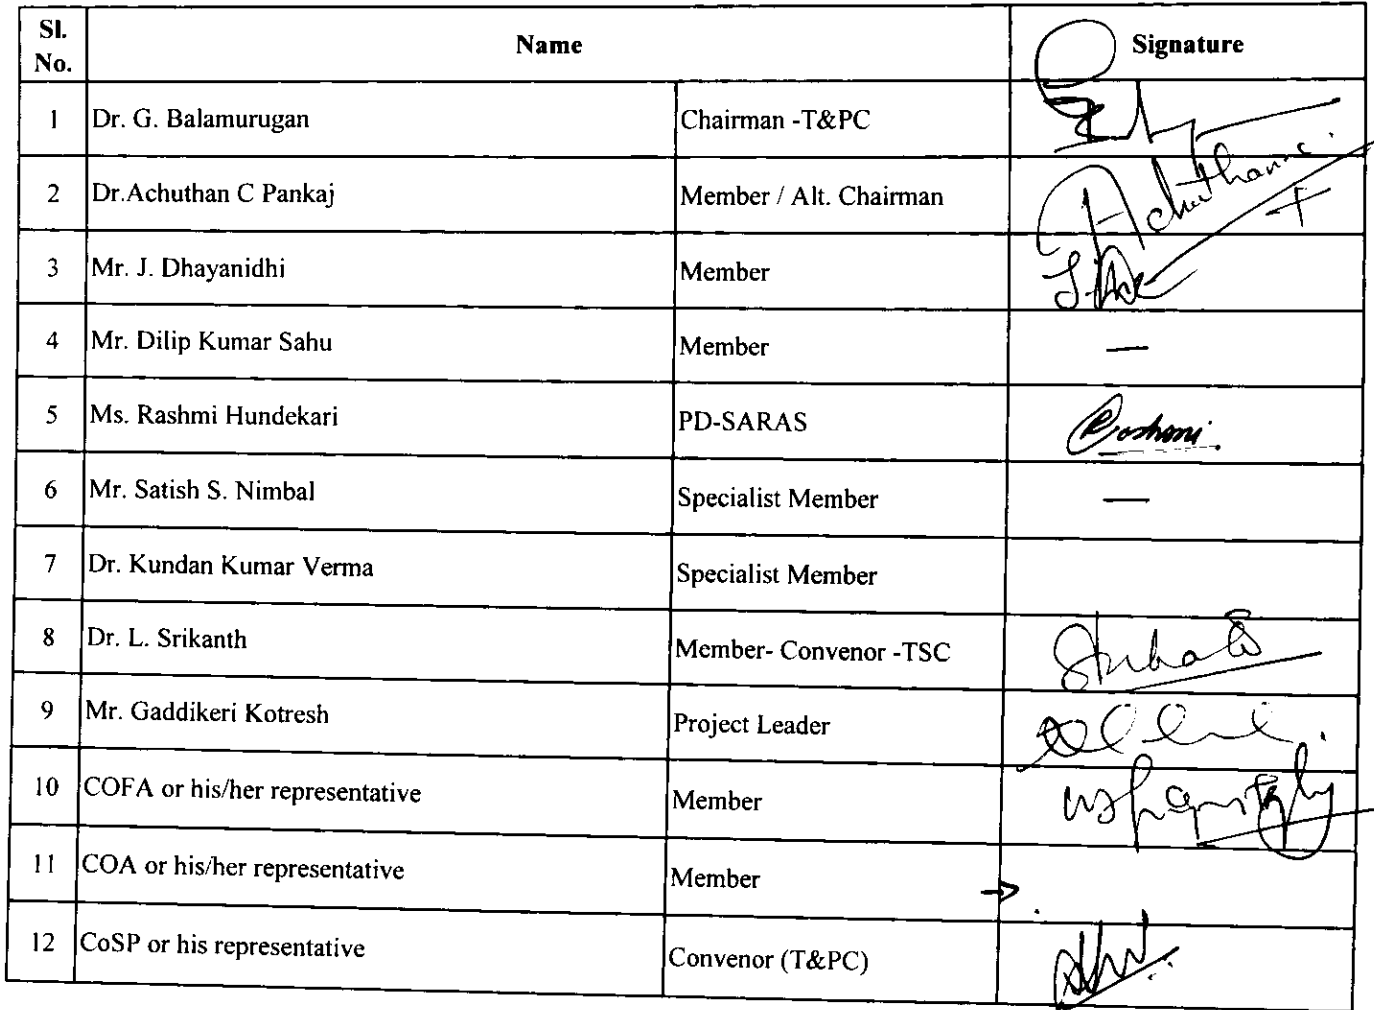 Sl. No. Name Signature
1 Dr. G. Balamurugan Chairman -T&PC
2 Dr.Achuthan C Pankaj Member / Alt. Chairman Achuthan
3 Mr. J. Dhayanidhi Member
4 Mr. Dilip Kumar Sahu Member —
5 Ms. Rashmi Hundekari PD-SARAS Rashmi
6 Mr. Satish S. Nimbal Specialist Member —
7 Dr. Kundan Kumar Verma Specialist Member
8 Dr. L. Srikanth Member- Convenor -TSC
9 Mr. Gaddikeri Kotresh Project Leader
10 COFA or his/her representative Member
11 COA or his/her representative Member →
12 CoSP or his representative Convenor (T&PC)